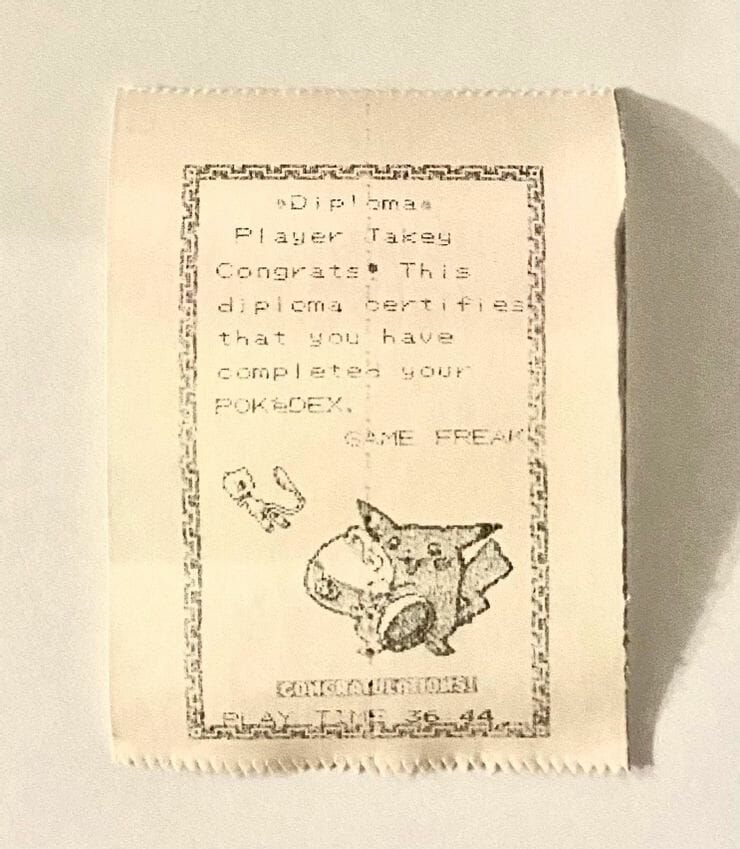 Diploma
Player Takey
Congrats! This
diploma certifies
that you have
completed your
POKéDEX.
GAME FREAK
CONGRATULATIONS!
PLAY TIME 36 44